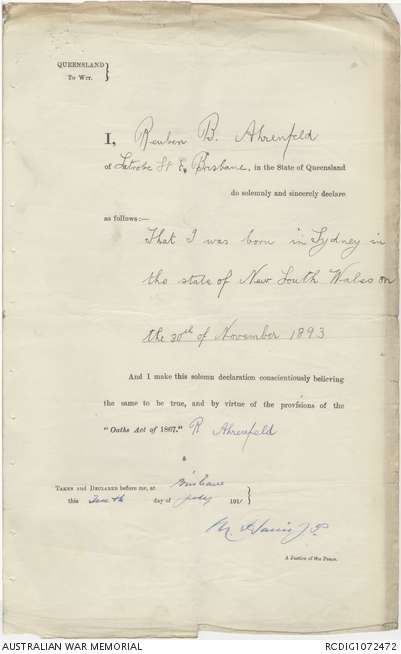 QUEENSLAND
TO WIT. }
I, Reuben B. Ahrenfeld
of Latrobe St E. Brisbane, in the State of Queensland
do solemnly and sincerely declare
as follows:—
That I was born in Sydney in
the state of New South Wales on
the 30th of November 1893
And I make this solemn declaration conscientiously believing
the same to be true, and by virtue of the provisions of the
"Oaths Act of 1867." R Ahrenfeld
TAKEN AND DECLARED before me, at Brisbane
this Tenth day of July 191 }
J.P.
A Justice of the Peace.
AUSTRALIAN WAR MEMORIAL
RCDIG1072472